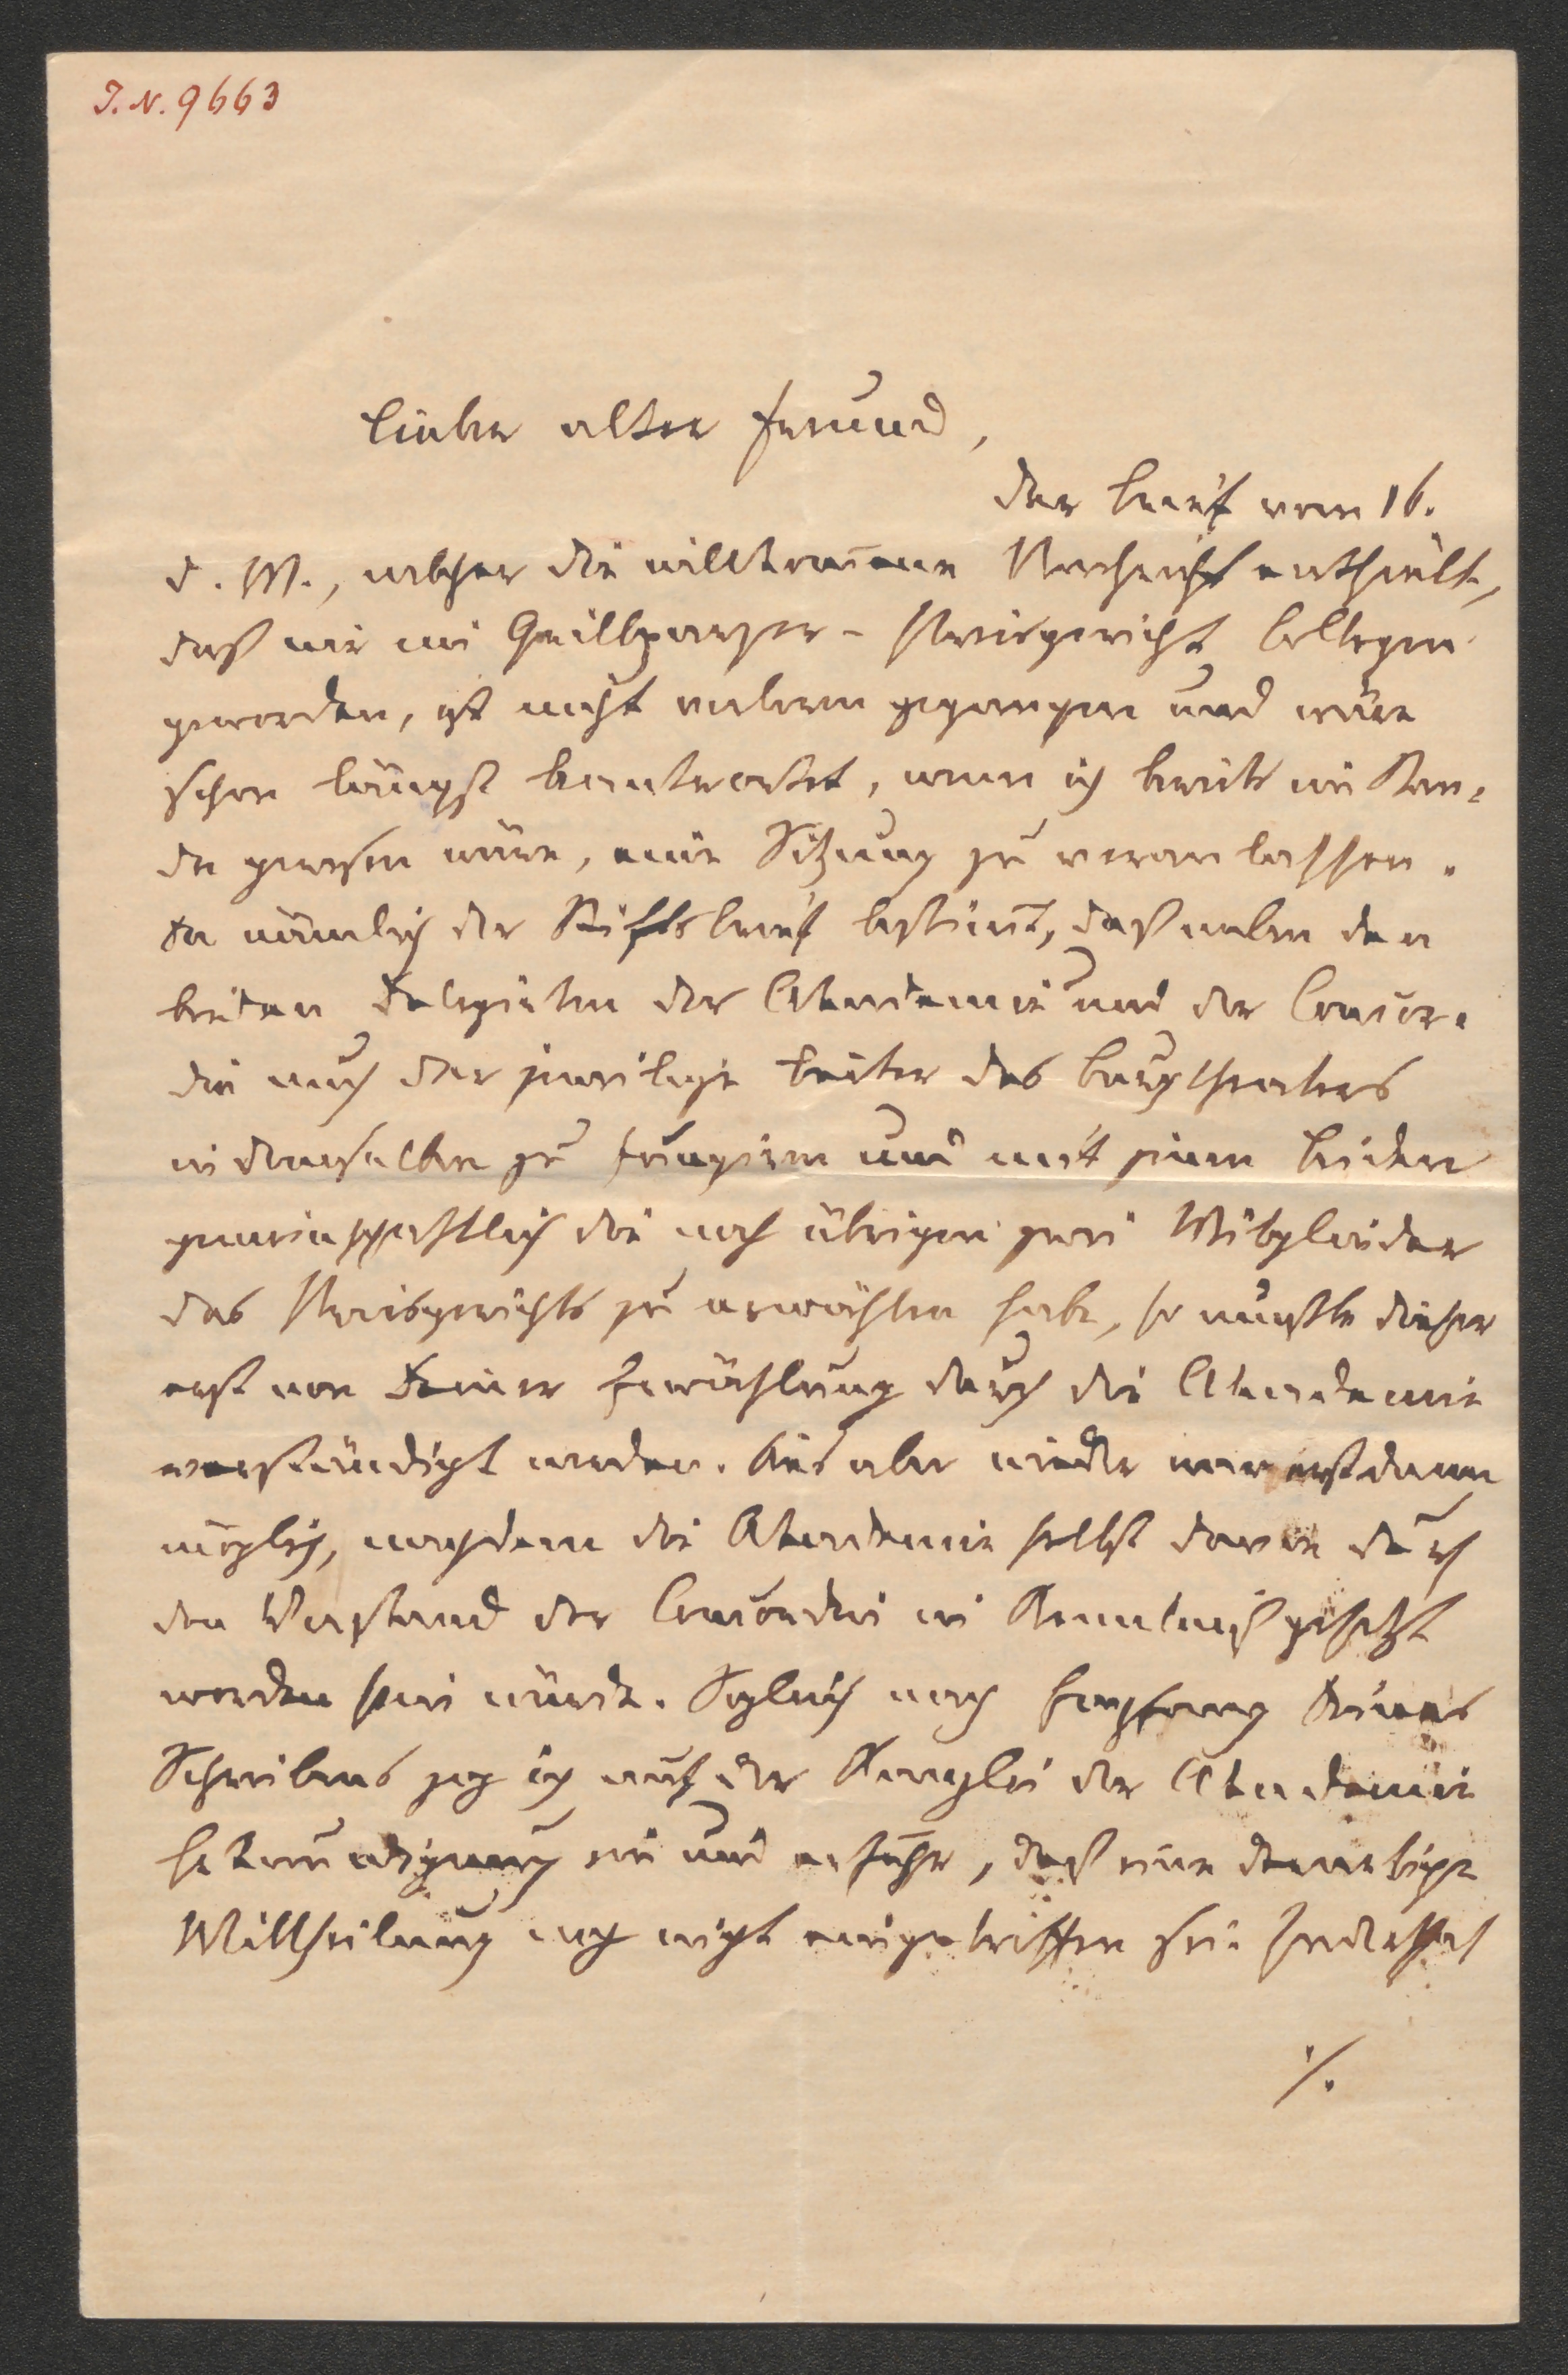 I. N. 9663
Lieber alter Freund,
der Brief vom 16.
d. M., welcher die willkom̅ene Nachricht enthielt,
daß wir im Grillparzer-Preisgericht Collegen
geworden, ist nicht verloren gegangen und wäre
schon längst beantwortet, wenn ich bereits im Stan-
de gewesen wäre, eine Sitzung zu veranlassen.
Da nämlich der Stiftsbrief bestim̅t, daß neben den
beiden Delegirten der Akademie und der Concor-
dia auch der jeweilige Leiter des Burgtheaters
in demselben zu fungiren und mit jenen beiden
gemeinschaftlich die noch übrigen zwei Mitglieder
des Preisgerichts zu erwählen habe, so mußte dieser
erst von Deiner Erwählung durch die Akademie
verständigt werden. Dies aber wieder war erst dann
möglich, nachdem die Akademie selbst davon durch
den Vorstand der Concordia in Kenntniß gesetzt
worden sein würde. Sogleich nach Empfang Deines
Schreibens zog ich auf der Kanzlei der Akademie
Erkundigung ein und erfuhr, daß eine derartige
Mittheilung noch nicht eingetroffen sei.
./.